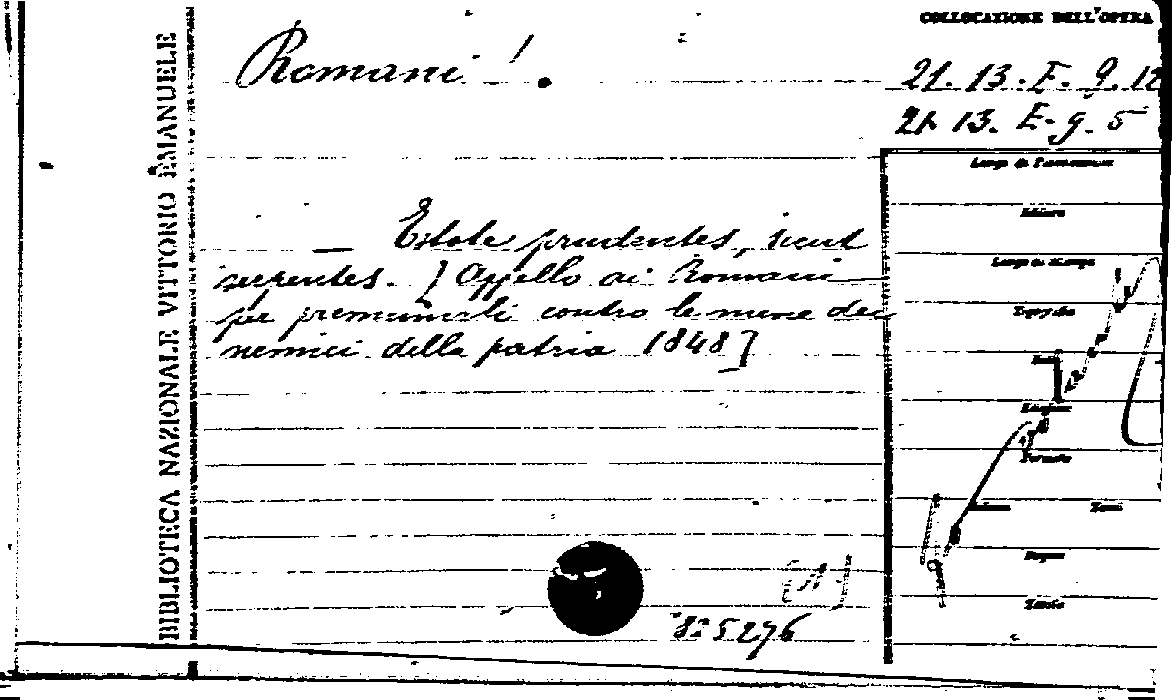 COLLOCAZIONE DELL'OPERA
Romani!
21. 13. E. 9. 12
21. 13. E. 9. 5
BIBLIOTECA NAZIONALE VITTORIO EMANUELE
Luogo di
Editore
— Estote prudentes, sicut
Luogo di stampa
serpentes. [Appello ai Romani
Tipografia
per premunirli contro le mene dei
nemici della patria 1848]
Formato
Pagine
Tavole
825276